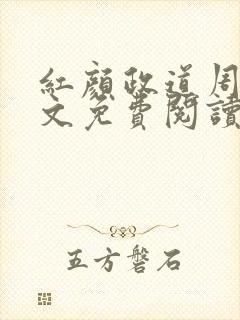 紅顏政道周
文免費閱讀
五方磐石